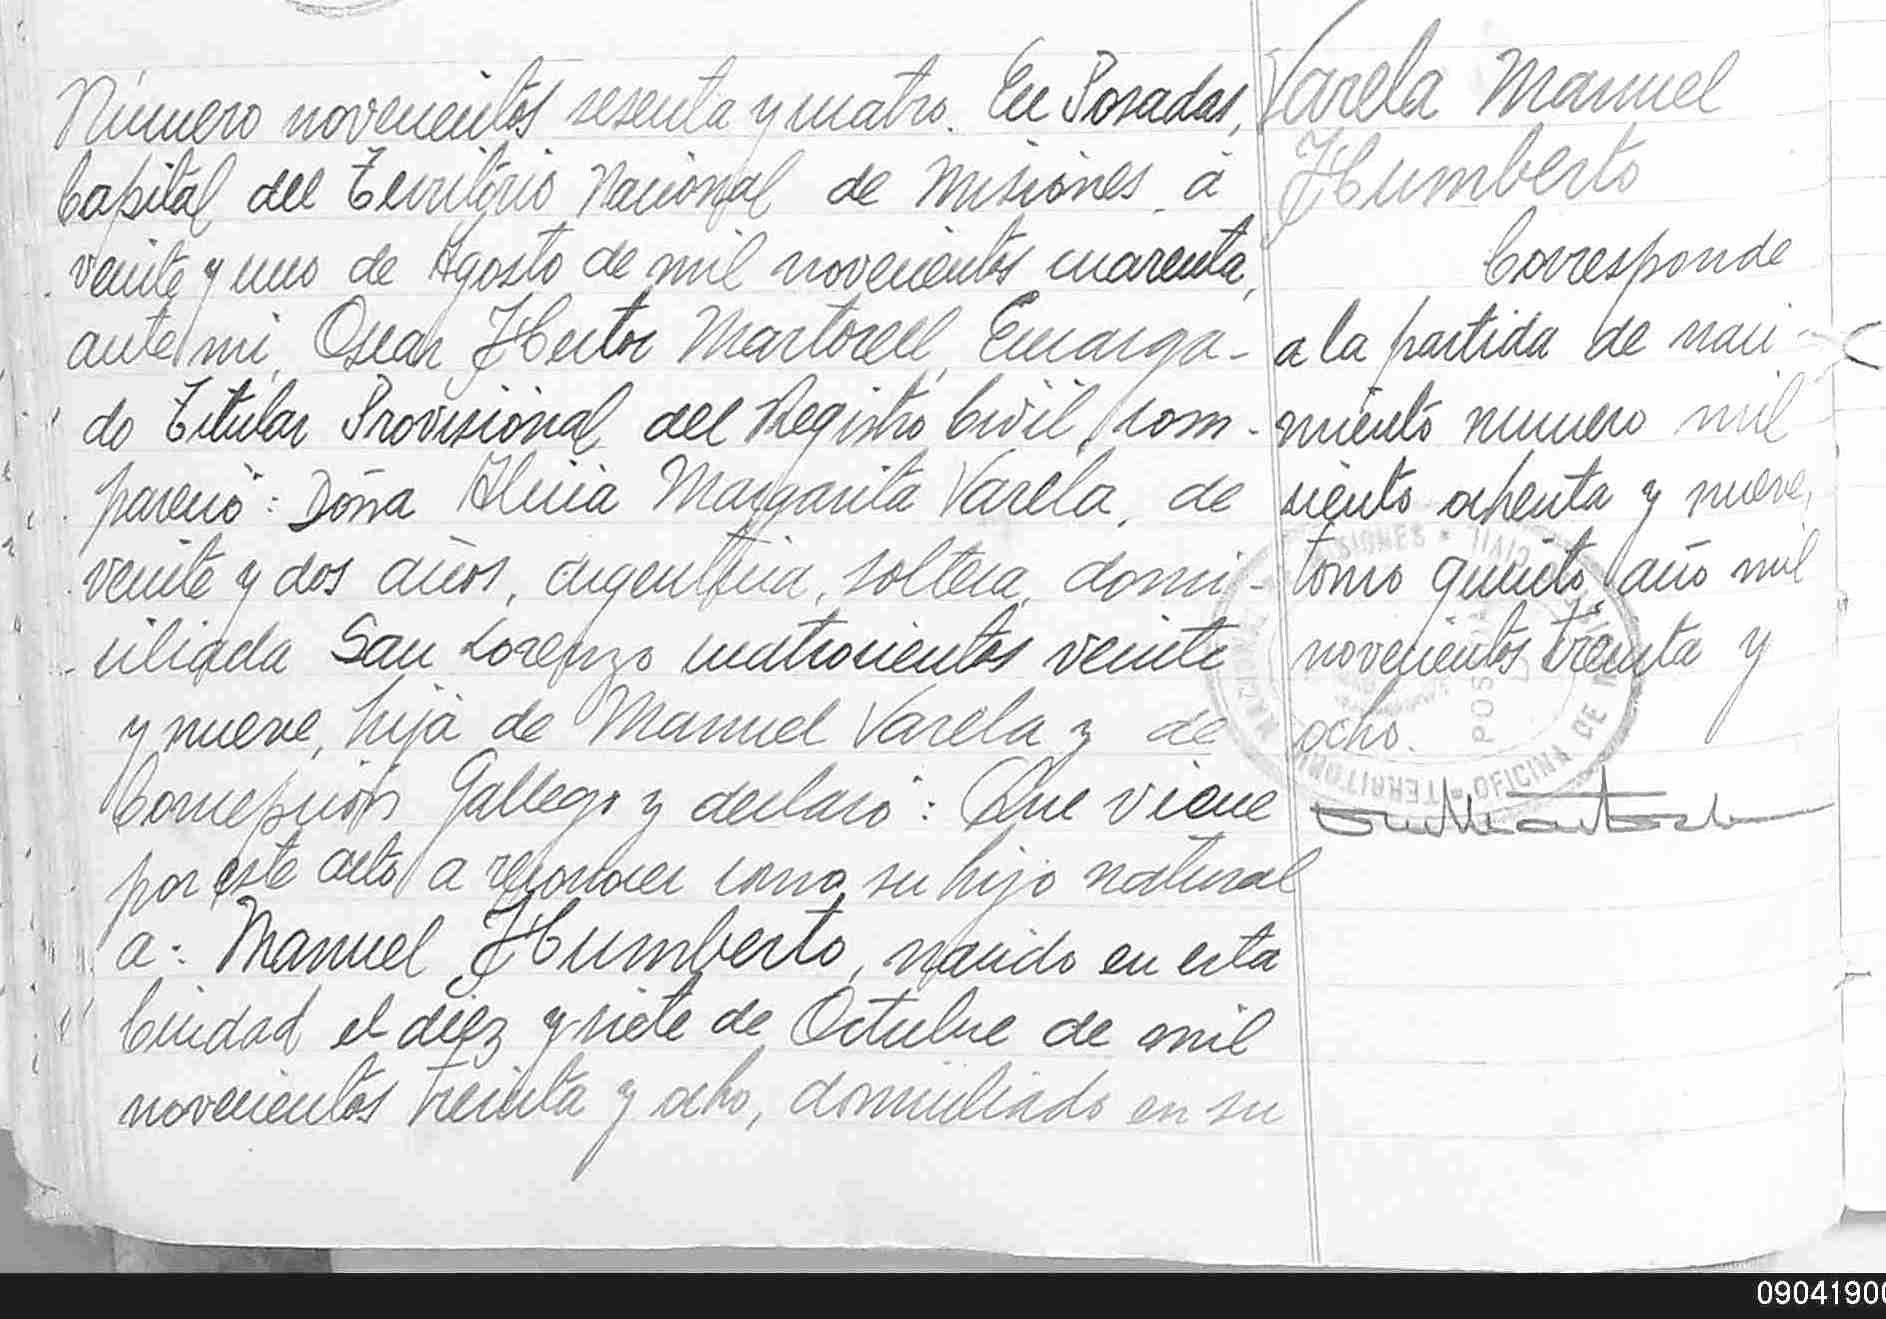 Número novecientos sesenta y cuatro. En Posadas,
Capital del Territorio Nacional de Misiones, a
veinte y uno de Agosto de mil novecientos cuarenta,
ante mi, Oscar Hector Martorell, Encarga-
do Titular Provisional del Registro Civil, com-
pareció: Doña Alicia Margarita Varela, de
veinte y dos años, argentina, soltera, domi-
ciliada San Lorenzo cuatrocientos veinte
y nueve, hija de Manuel Varela y de
Concepción Gallego y declaró: Que viene
por este acto a reconocer como su hijo natural
a: Manuel Humberto, nacido en esta
Ciudad el diez y siete de Octubre de mil
novecientos treinta y ocho, domiciliado en su
Varela Manuel
Humberto
Corresponde
a la partida de naci-
miento numero mil
ciento ochenta y nueve,
tomo quinto, año mil
novecientos treinta y
ocho.
09041900